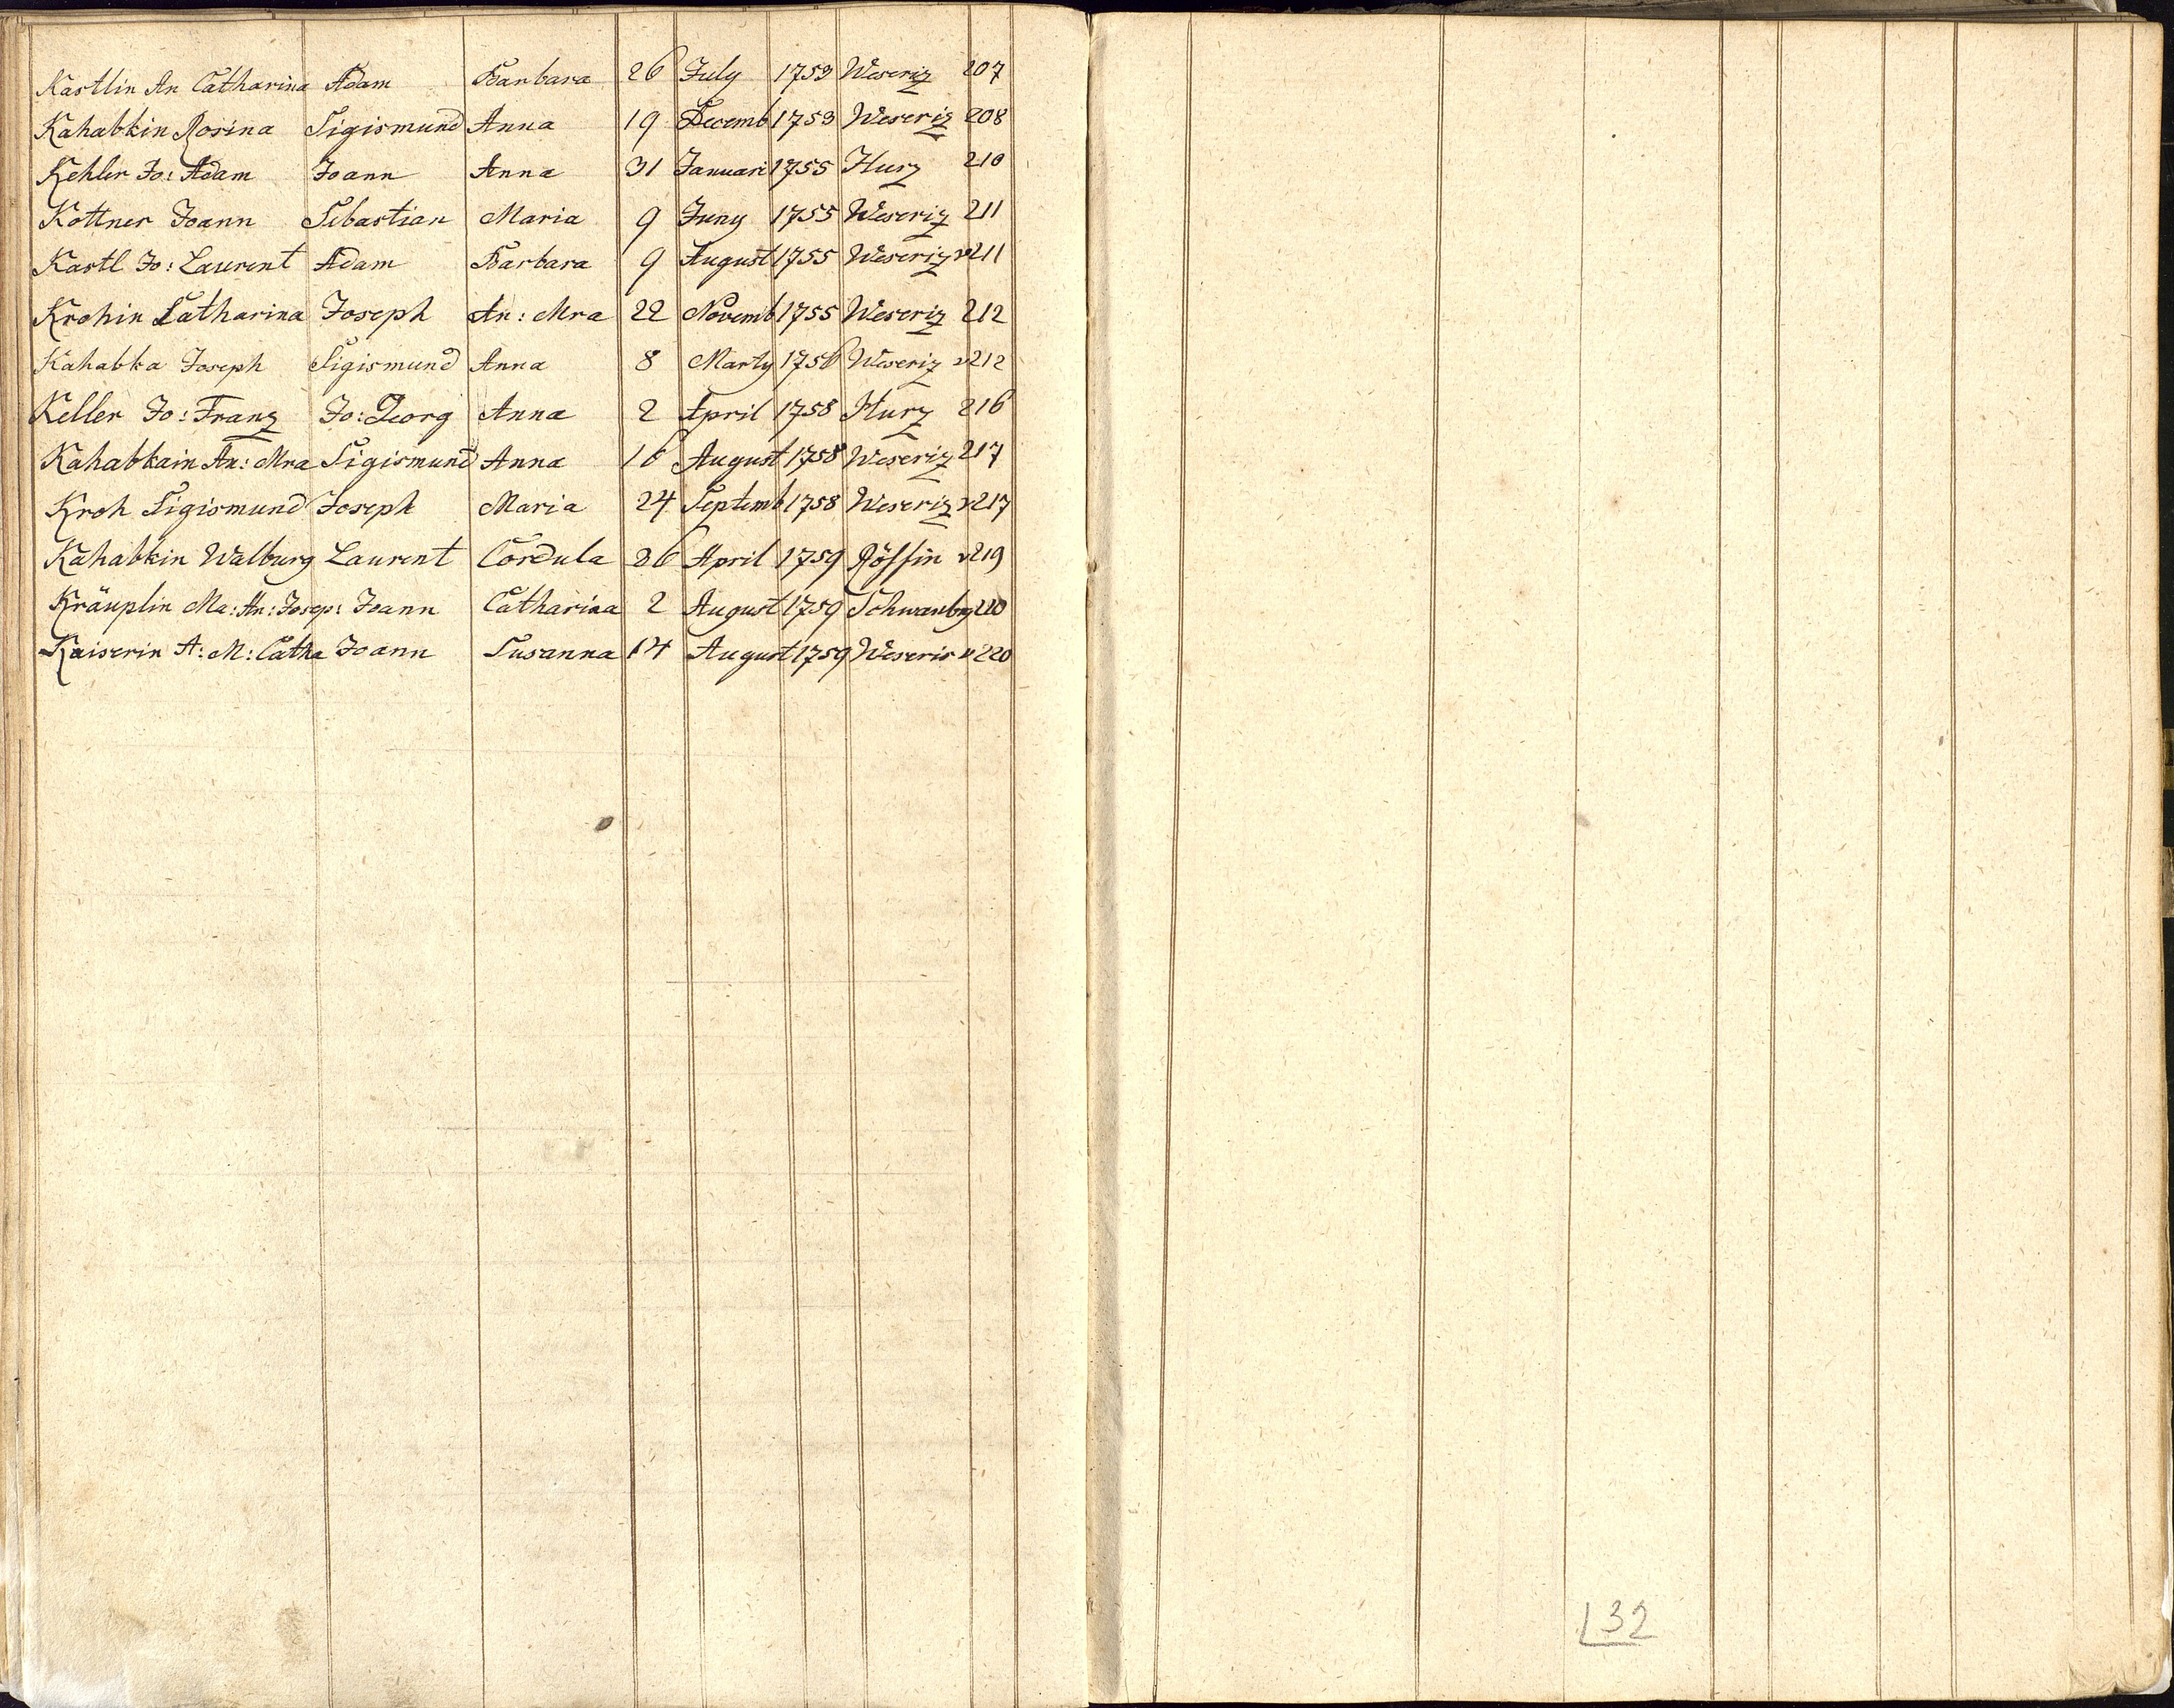 Kastlin An Catharina Adam Barbara 26 July 1753 Weseriz 207
Kahabkin Rosina Sigismund Anna 19 Decemb 1753 Weseriz 208
Kehler Jo: Adam Joann Anna 31 Januari 1755 Hurz 210
Kottner Joann Sebastian Maria 9 Juny 1755 Weseriz 211
Kastl Jo: Laurent Adam Barbara 9 August 1755 Weseriz v211
Krohin Catharina Joseph An: Mra 22 Novemb 1755 Weseriz 212
Kahabka Joseph Sigismund Anna 8 Marty 1756 Weseriz v212
Keller Jo: Franz Jo: Georg Anna 2 April 1758 Hurz 216
Kahabkain An: Mra Sigismund Anna 16 August 1758 Weseriz 217
Kroh Sigismund Joseph Maria 24 Septemb 1758 Weseriz v217
Kahabkin Walburg Laurent Cordula 26 April 1759 v219
Kräuplin Ma: An: Josep: Joann Catharina 2 August 1759 Schwanbg 220
Kaiserin A: M: Catha Joann Susanna 14 August 1759 Weseris v220
132